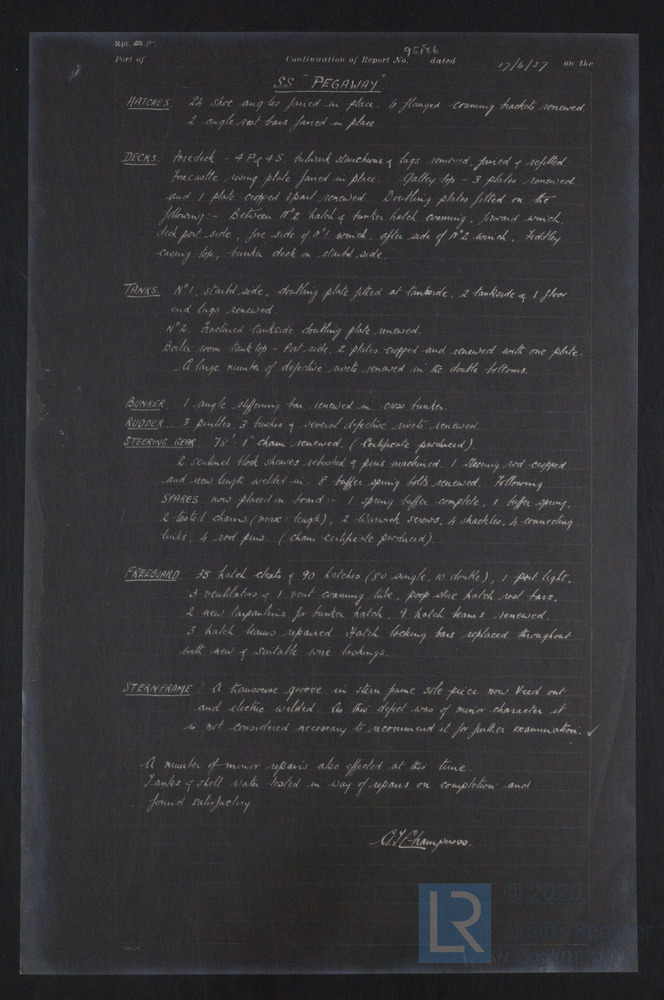 Rpt.
Port of Continuation of Report No. 95186 dated 17/6/27 on the
S.S. "PEGAWAY"
HATCHES. 24 shoe angles faired in place. 6 flanged coaming brackets renewed.
2 angle rest bars faired in place
DECKS. Foredeck - 4 P. & 4 S. bulwark stanchions & lugs removed, faired & refitted.
Forecastle wing plate faired in place. Galley top - 3 plates renewed
and 1 plate cropped & part renewed. Doubling plates fitted on the
following:- Between No 2 hatch & bunker hatch coaming, forward winch,
deck port side, fore side of No 1 winch, after side of No 2 winch, Fiddley
casing top, bunker deck on starbd side.
TANKS. No 1, starbd side, doubling plate fitted at tankside, 2 tankside & 1 floor
end lugs renewed.
No 2 fractured tankside doubling plate renewed.
Boiler room tank top - Port side, 2 plates cropped and renewed with one plate.
A large number of defective rivets renewed in the double bottoms.
BUNKER. 1 angle stiffening bar renewed in cross bunker.
RUDDER. 3 pintles, 3 bushes & several defective rivets renewed
STEERING GEAR. 75' 1" chain renewed. (Certificate produced).
2 sentinel block sheaves rebushed & pins machined. 1 steering rod cropped
and new length welded in. 8 buffer spring bolts renewed. Following
SPARES now placed on board:- 1 spring buffer complete, 1 buffer spring,
2 tested chains (max: length), 2 Warwick screws, 4 shackles, 4 connecting
links, 4 rod pins. (chain certificate produced).
FREEBOARD. 35 hatch cleats & 90 hatches (80 single, 10 double), 1 port light,
3 ventilators & 1 vent coaming tube, poop store hatch rest bars.
2 new tarpaulins for bunker hatch, 9 hatch beams renewed.
3 hatch beams repaired. Hatch locking bars replaced throughout
with new & suitable wire lashings.
STERNFRAME: A transverse groove in stern frame sole piece now Veed out
and electric welded. As this defect was of minor character it
is not considered necessary to recommend it for further examination. ✓
A number of minor repairs also effected at this time.
Tanks & shell water tested in way of repairs on completion and
found satisfactory.
Champness.
LR
© 2020